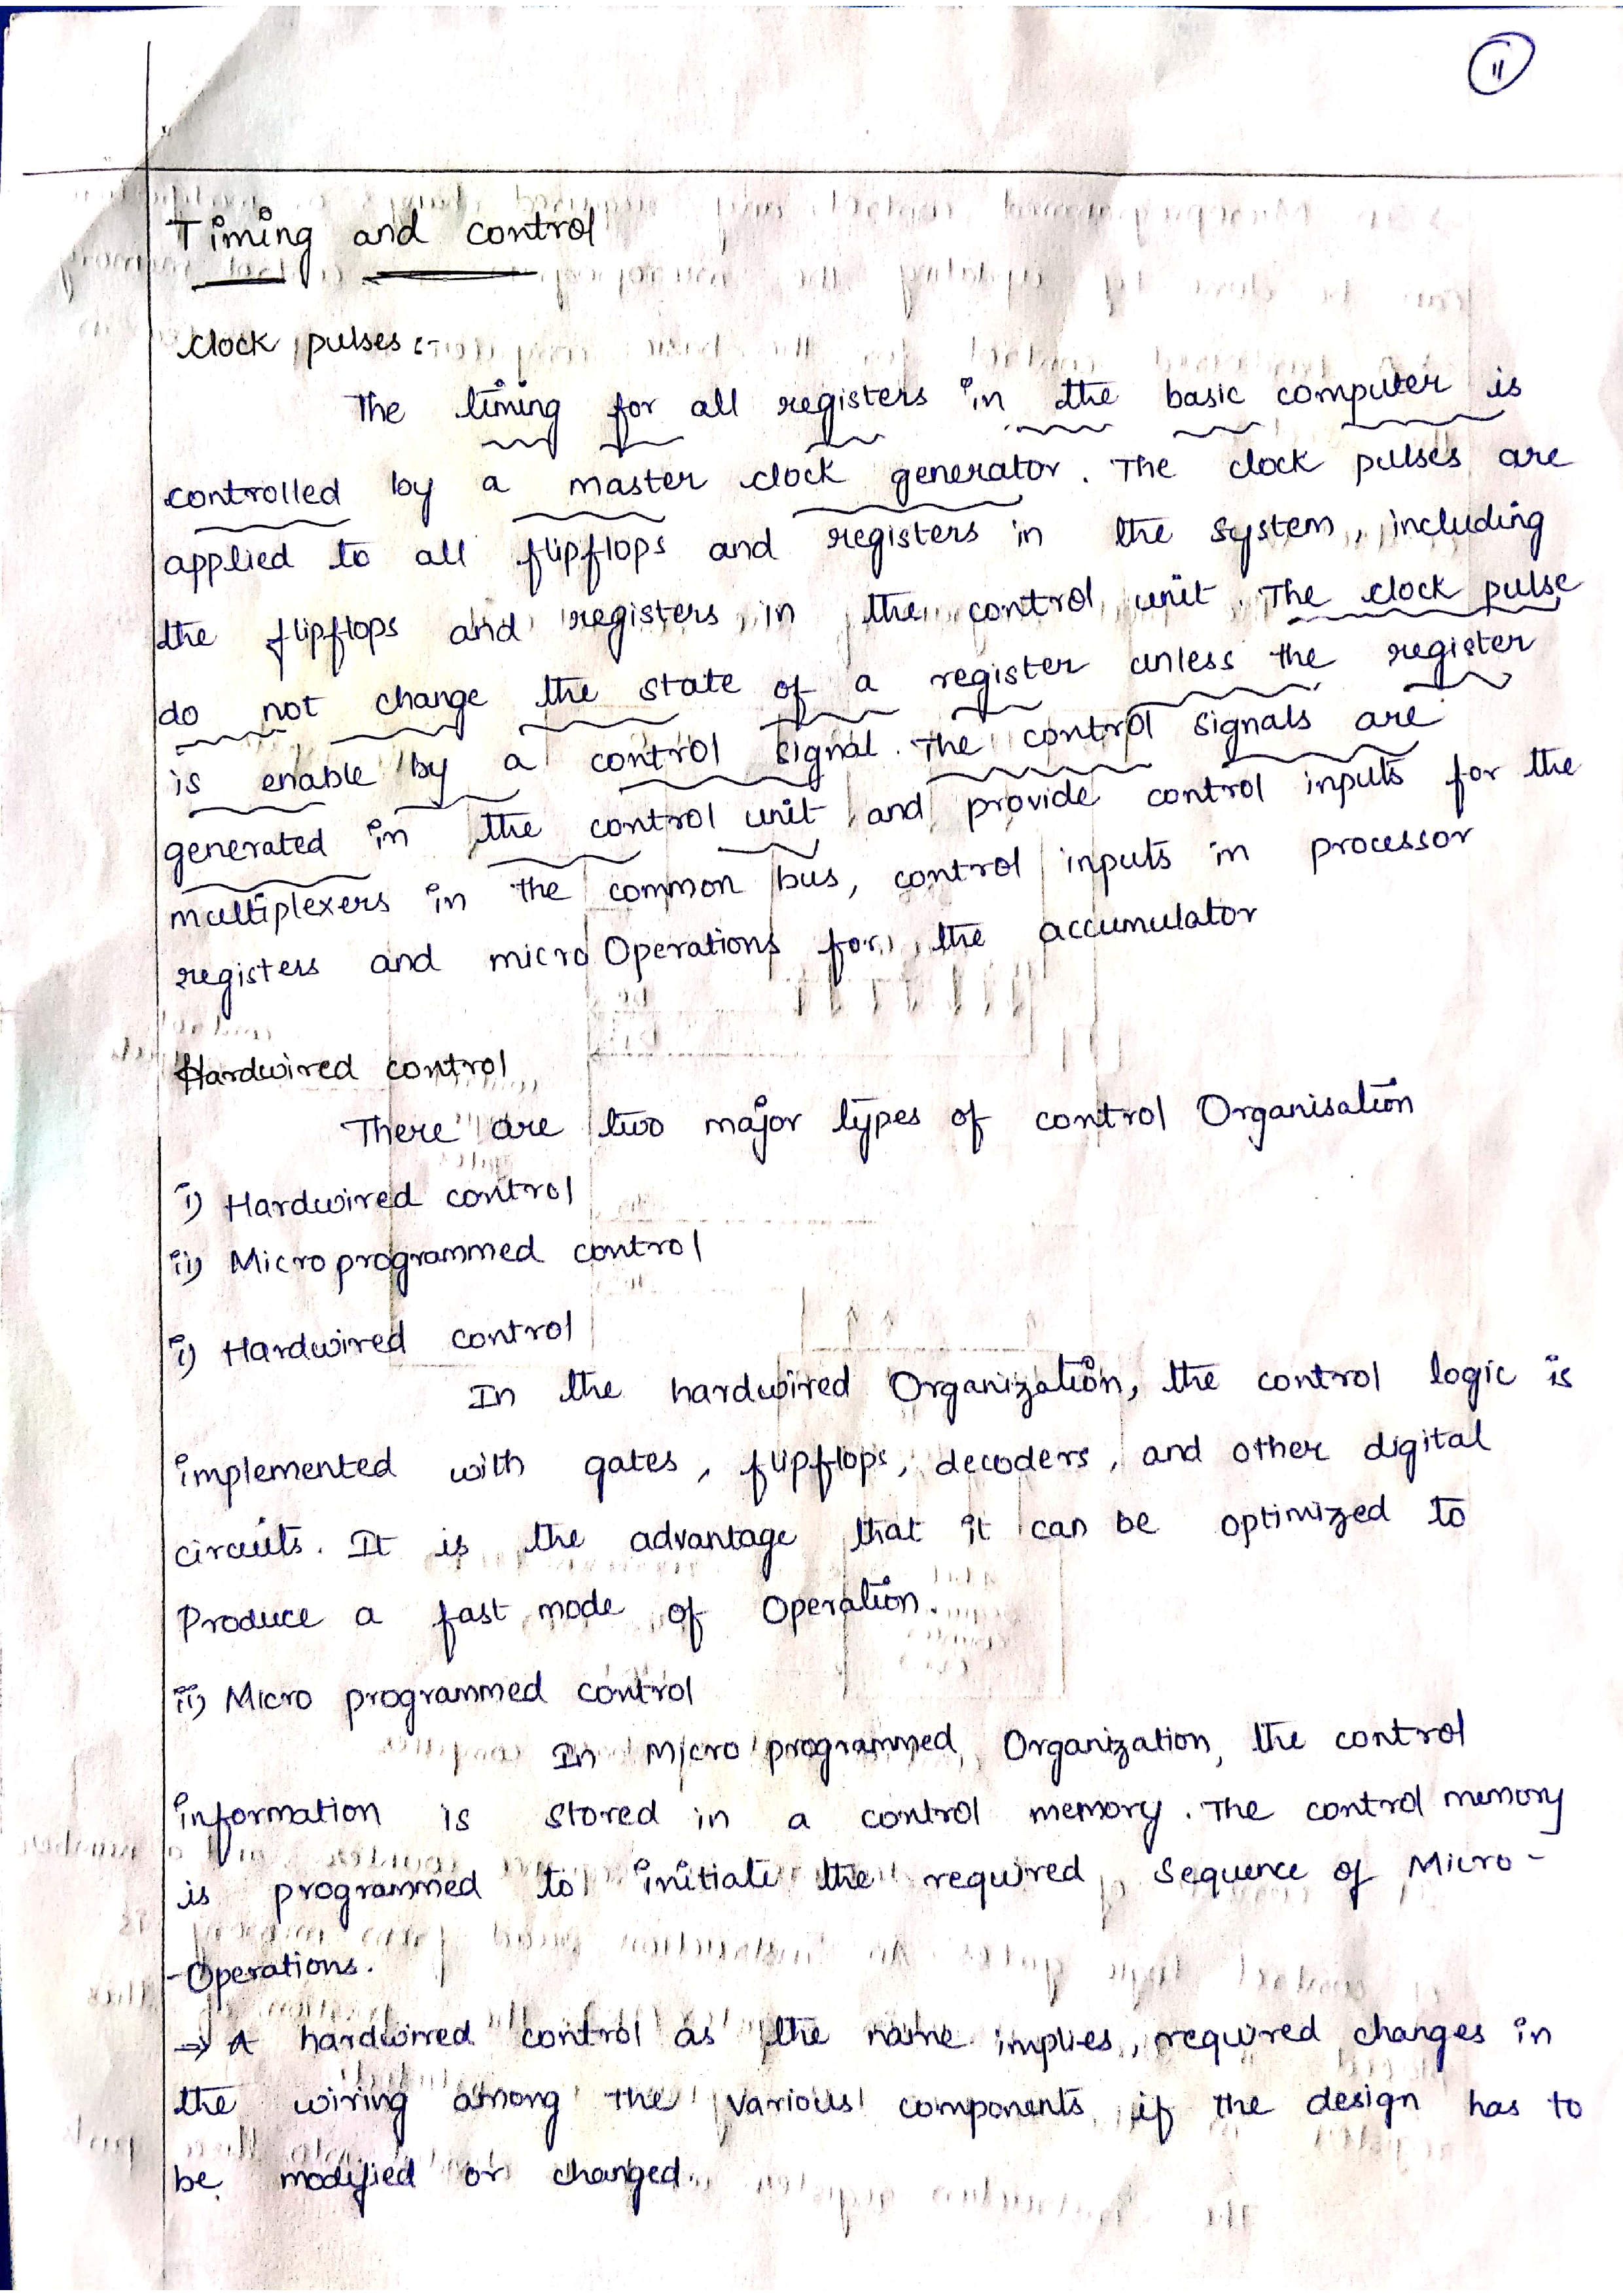 11
Timing and control
clock pulses :-
The timing for all registers in the basic computer is
controlled by a master clock generator. The clock pulses are
applied to all flipflops and registers in the system, including
the flipflops and registers in the control unit. The clock pulse
do not change the state of a register unless the register
is enable by a control signal. The control signals are
generated in the control unit and provide control inputs for the
multiplexers in the common bus, control inputs in processor
registers and micro Operations for the accumulator
Hardwired control
There are two major types of control Organisation
i) Hardwired control
ii) Micro programmed control
i) Hardwired control
In the hardwired Organization, the control logic is
implemented with gates, flipflops, decoders, and other digital
circuits. It is the advantage that it can be optimized to
Produce a fast mode of Operation.
ii) Micro programmed control
In Micro programmed Organization, the control
information is stored in a control memory. The control memory
is programmed to initiate the required sequence of Micro-
-Operations.
→ A hardwired control as the name implies, required changes in
the wiring among the various components if the design has to
be modified or changed.